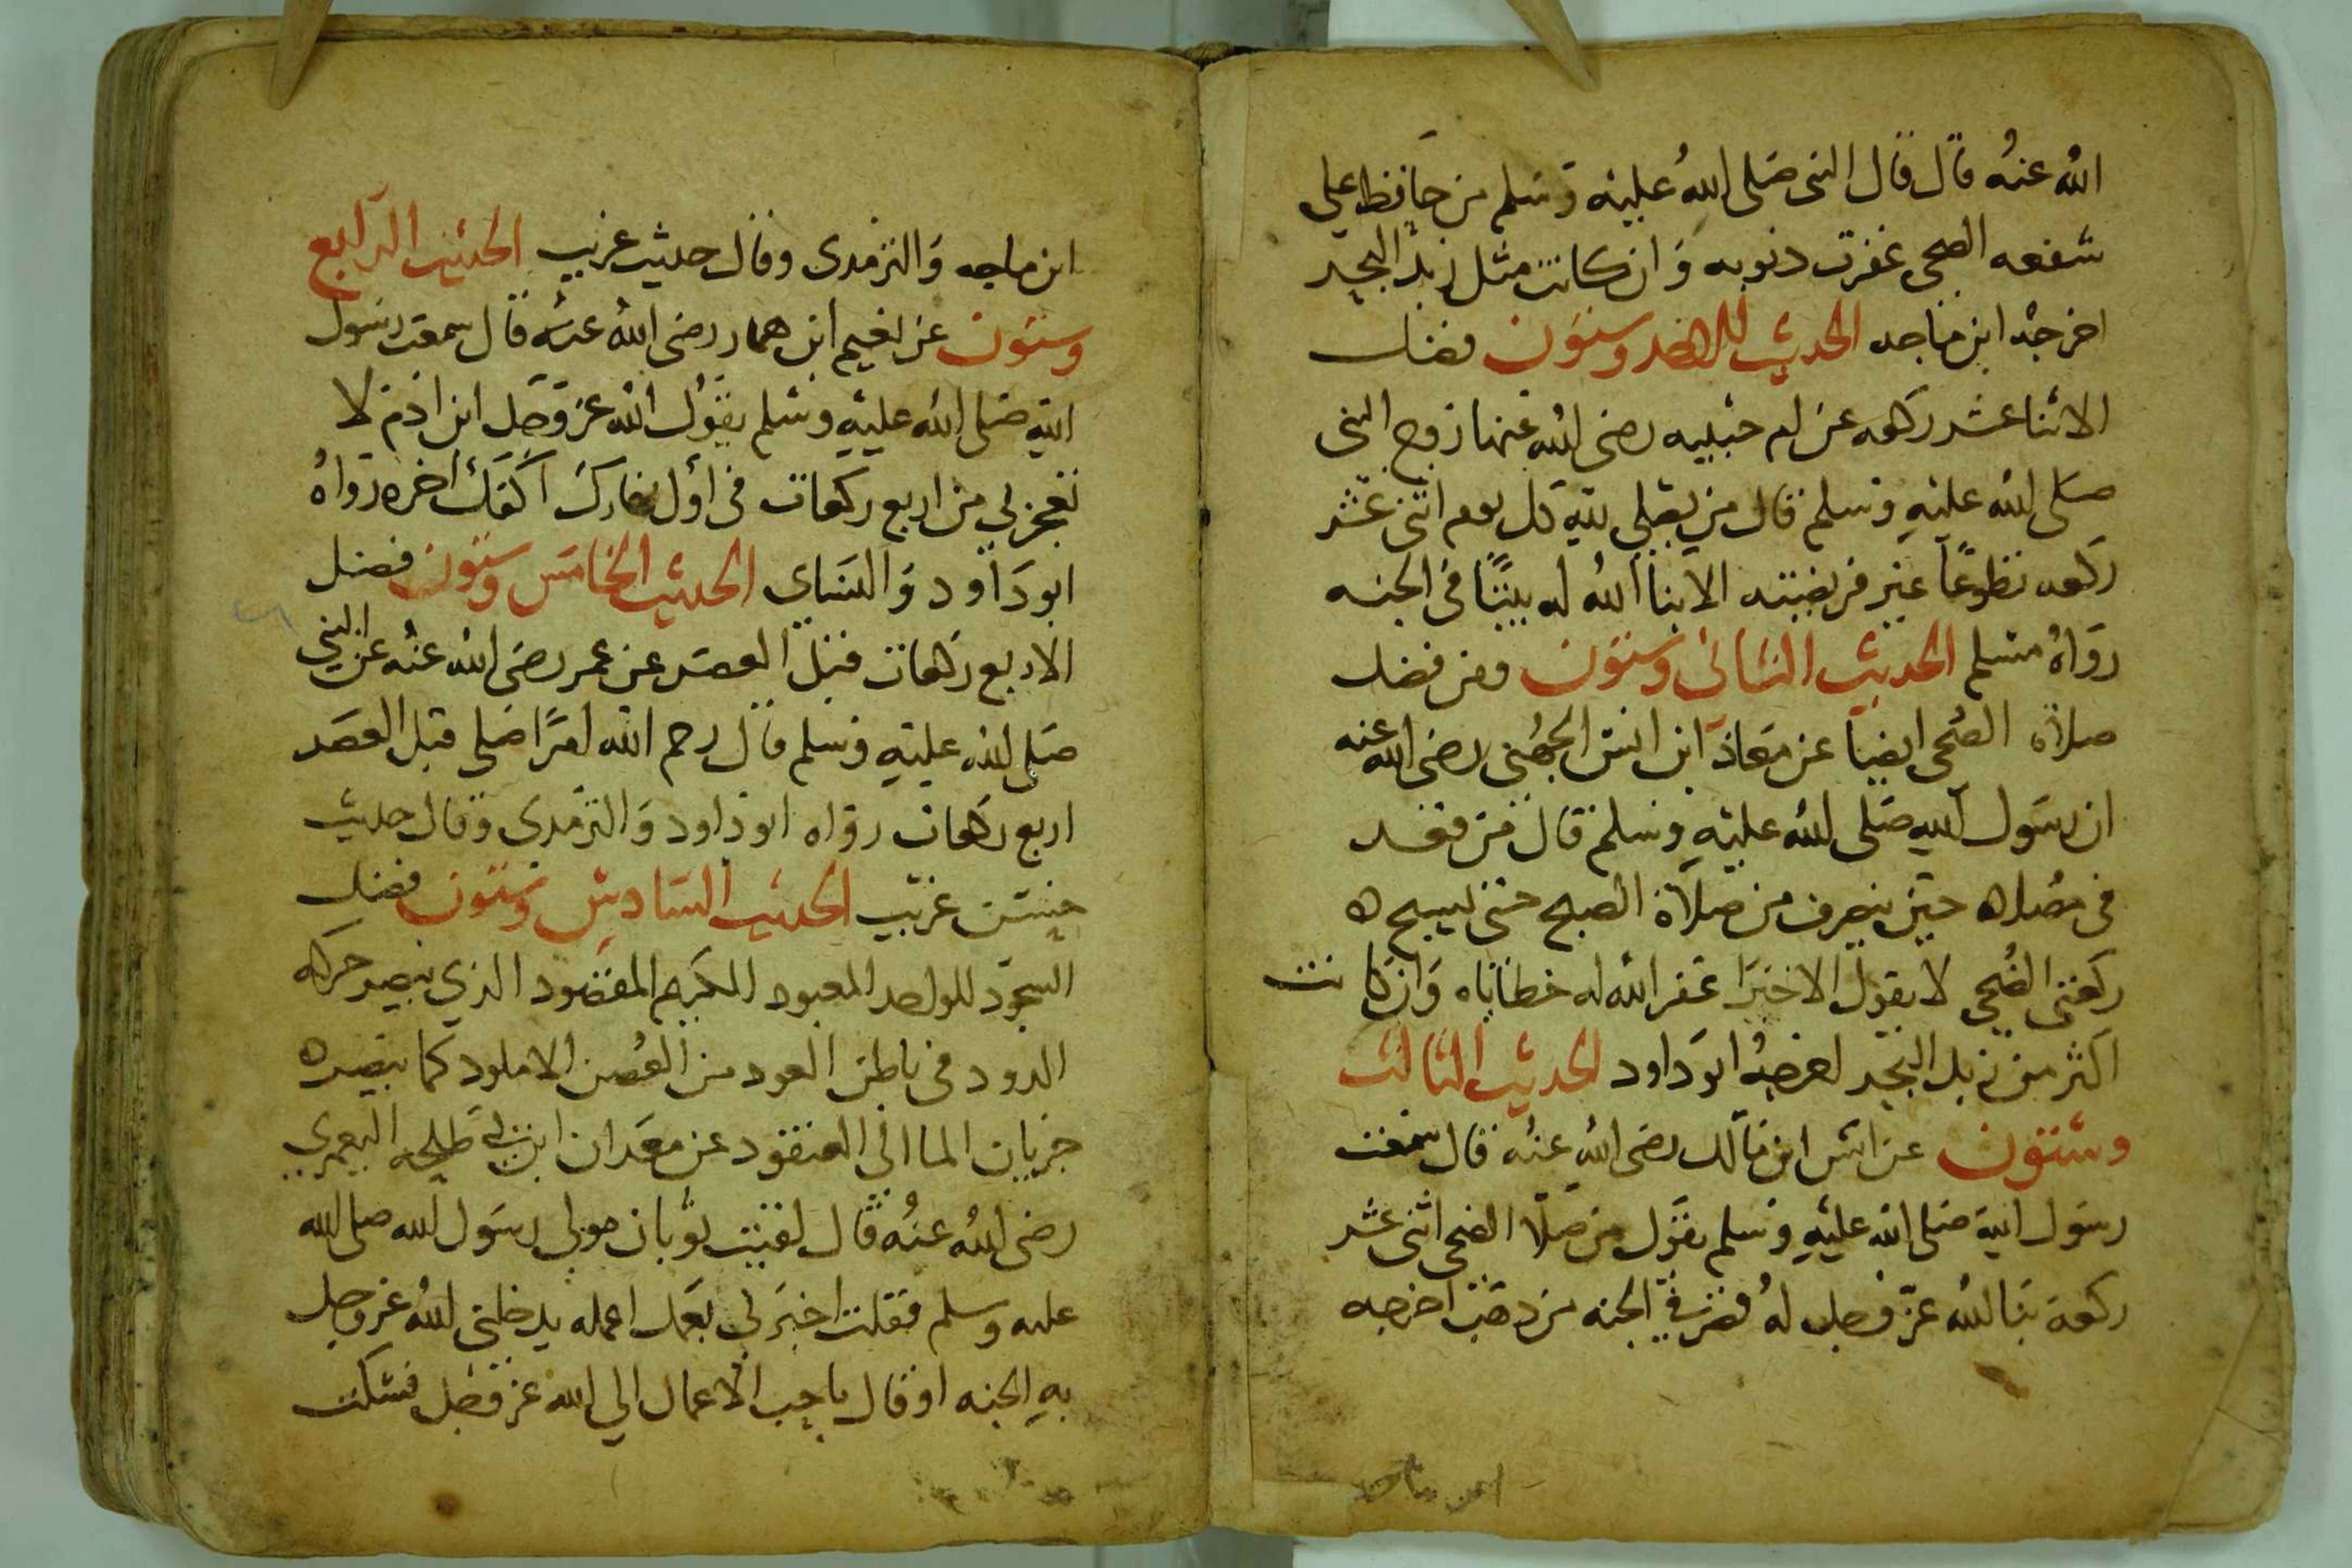 الله عنه قال قال النبى صلى الله عليه وسلم من حافظ على
شفعه الضحى غفرت ذنوبه وان كانت مثل زبد البحر
اخرجه ابن ماجه الحديث الواحد وستون فضل
الاثنا عشر ركعه عن ام حبيبه رضى الله عنها زوج النبى
صلى الله عليه وسلم قال من يصلى لله كل يوم اثنى عشر
ركعه تطوعًا غير فريضته الا بنا الله له بيتًا فى الجنه
رواه مسلم الحديث الثانى وستون ومن فضل
صلاة الضحى ايضا عن معاذ ابن انس الجهنى رضى الله عنه
ان رسول الله صلى الله عليه وسلم قال من قعد
فى مصلاه حين ينصرف من صلاة الصبح حتى يسبح
ركعتى الضحى لا يقول الا خيرا غفر الله له خطاياه وان كانت
اكثر من زبد البحر اخرجه ابو داود الحديث الثالث
وستون عن انس ابن مالك رضى الله عنه قال سمعت
رسول الله صلى الله عليه وسلم يقول من صلا الضحى اثنى عشر
ركعة بنا لله عز وجل له قصر فى الجنه من ذهب اخرجه
ابن ماجه
ابن ماجه والترمذى وقال حديث غريب الحديث الرابع
وستون عن نعيم ابن همار رضى الله عنه قال سمعت رسول
الله صلى الله عليه وسلم يقول الله عز وجل ابن ادم لا
تعجزني من اربع ركعات فى اول نهارك اكفك اخره رواه
ابو داود والنساي الحديث الخامس وستون فضل
الاربع ركعات قبل العصر عن عمر رضى الله عنه عن النبى
صلى الله عليه وسلم قال رحم الله امرًا صلى قبل العصر
اربع ركعات رواه ابو داود والترمذى وقال حديث
حسن غريب الحديث السادس وستون فضل
السجود للواحد المعبود الكريم المقصود الذي يبصر حركه
الدود فى باطن العود من الغصن الاملود كما يبصره
جريان الما الى العنقود عن معدان ابن ابي طلحه اليعمري
رضى الله عنه قال لقيت ثوبان مولي رسول الله صلى الله
عليه وسلم فقلت اخبرني بعمل اعمله يدخلنى الله عز وجل
به الجنه او قال باحب الاعمال الي الله عز وجل فسكت